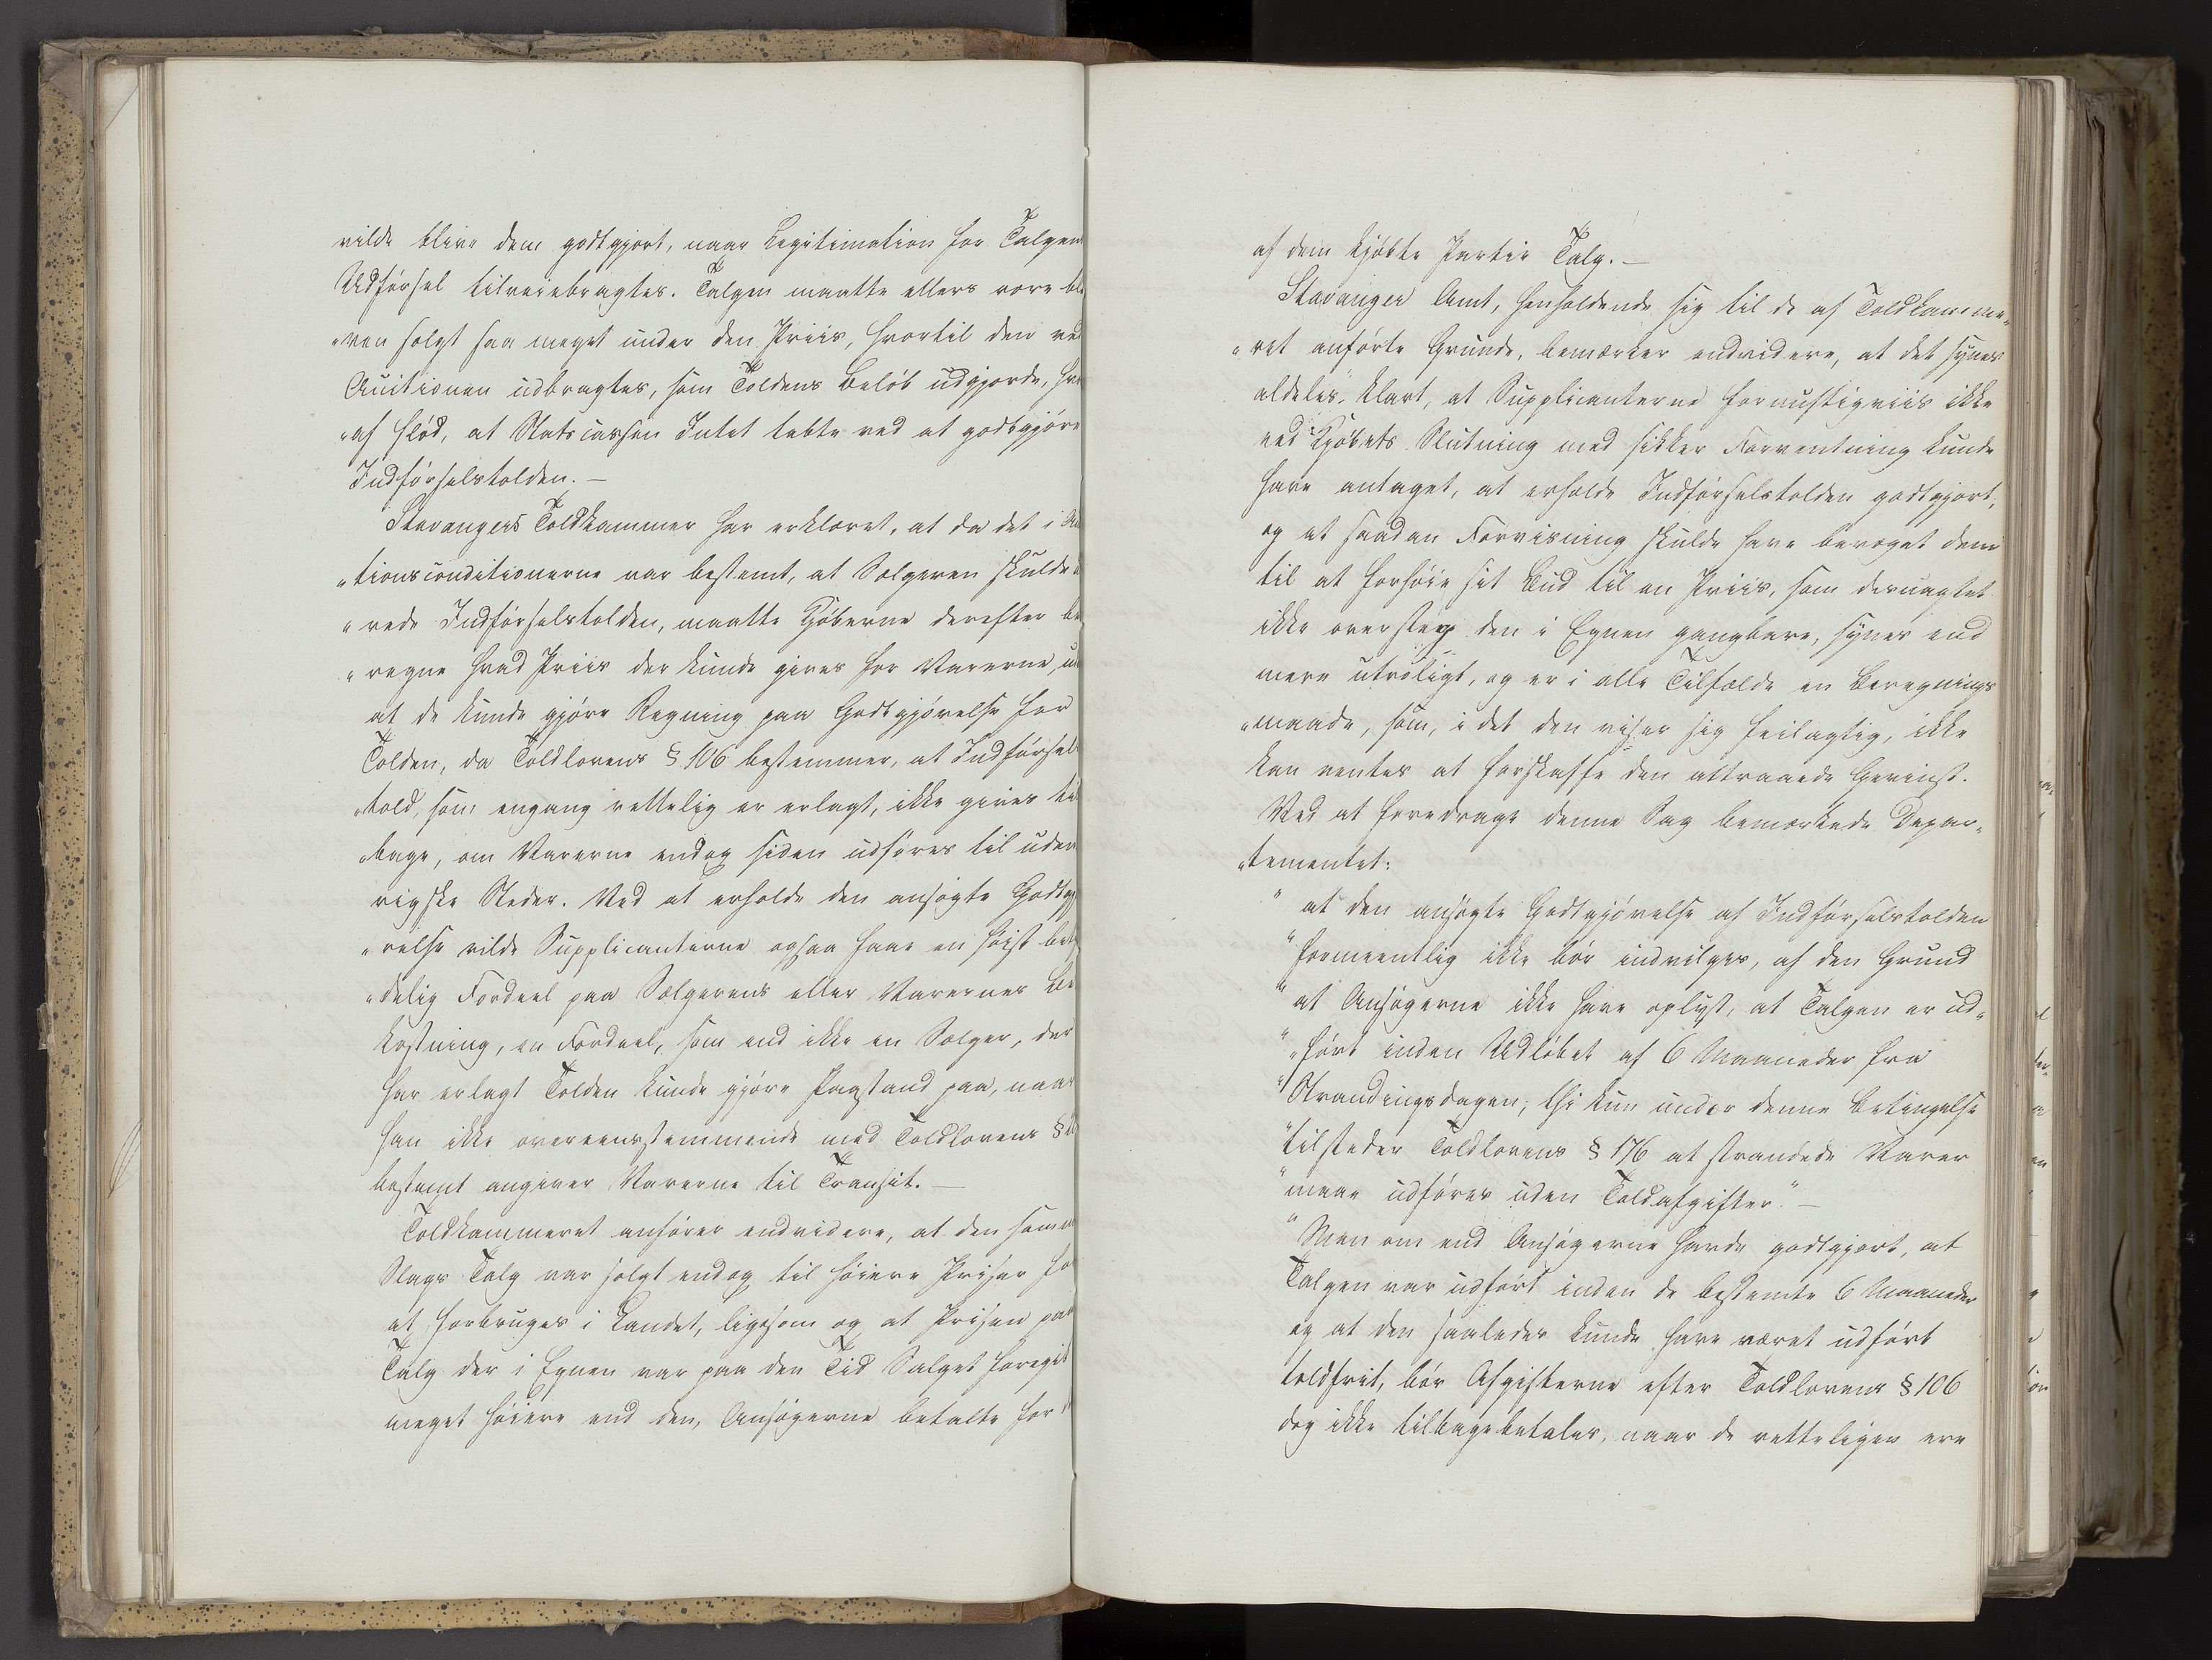 vilde blive dem godtgjort, naar Legitimation for Talgens
Udførsel tilveiebragtes. Talgen maatte ellers være ble
„ven solgt saa meget under den Priis, hvortil den ved
Auctionen udbragtes, som Toldens Beløb udgjorde, hvor
„af flød, at Statscassen Intet tabte ved at godtgjøre
Indførselstolden. —
Stavangers Toldkammer har erklæret, at da det i Auc
„tionsconditionerne var bestemt, at Sælgeren skulde
„rede Indførselstolden, maatte Kjøberne derefter be
„regne hvad Priis der kunde gives for Varerne, uden
at de kunde gjøre Regning paa Godtgjørelse for
Tolden, da Toldlovens § 106 bestemmer, at Indførsels
„told, som engang rettelig er erlagt, ikke gives til
„bage, om Varerne endog siden udføres til uden
rigske Steder. Ved at erholde den ansøgte Godtgjø
„relse vilde Supplicanterne ogsaa faae en høist bety
„delig Fordeel paa Sælgerens eller Varernes Be
kostning, en Fordeel, som end ikke en Sælger, der
har erlagt Tolden kunde gjøre Paastand paa, naar
han ikke overeensstemmende med Toldlovens §
bestemt angiver Varerne til Transit. —
Toldkammeret anfører endvidere, at den samme
Slags Talg var solgt endog til høiere Priser for
at forbruges i Landet, ligesom og at Prisen paa
Talg der i Egnen var paa den Tid Salget foregik
meget høiere end den, Ansøgerne betalte for
af dem kjøbte Partie Talg. —
Stavanger Amt, henholdende sig til de af Toldkamme„
„ret anførte Grunde, bemærker endvidere, at det synes
aldeles klart, at Supplicanterne fornuftigviis ikke
ved Kjøbets Slutning med sikker Forventning kunde
have antaget, at erholde Indførselstolden godtgjort,
og at saadan Forvisning skulde have bevæget dem
til at forhøie sit Bud til en Priis, som desuagtet
ikke oversteg den i Egnen gangbare, synes end
mere utroligt, og er i alle Tilfælde en Beregnings
„maade, som, i det den viser sig feilagtig, ikke
kan ventes at forskaffe den attraaede Gevinst.
Ved at foredrage denne Sag bemærkede Depar„
„tementet:
" at den ansøgte Godtgjørelse af Indførselstolden
" formeentlig ikke bør indvilges, af den Grund
" at Ansøgerne ikke have oplyst, at Talgen er ud„
" „ført inden Udløbet af 6 Maaneder fra
" Strandingsdagen; thi kun under denne Betingelse
" tilsteder Toldlovens § 176 at strandede Varer
" maae udføres uden Toldafgifter." —
" Men om end Ansøgerne havde godtgjort, at
Talgen var udført inden de bestemte 6 Maaneder
og at den saaledes kunde have været udført
toldfrit, bør Afgifterne efter Toldlovens § 106
dog ikke tilbagebetales, naar de retteligen ere